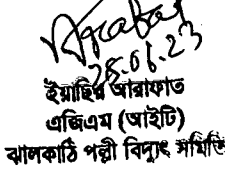 Arafat
25.06.23
ইয়াছির আরাফাত
এজিএম (আইটি)
ঝালকাঠি পল্লী বিদ্যুৎ সমিতি